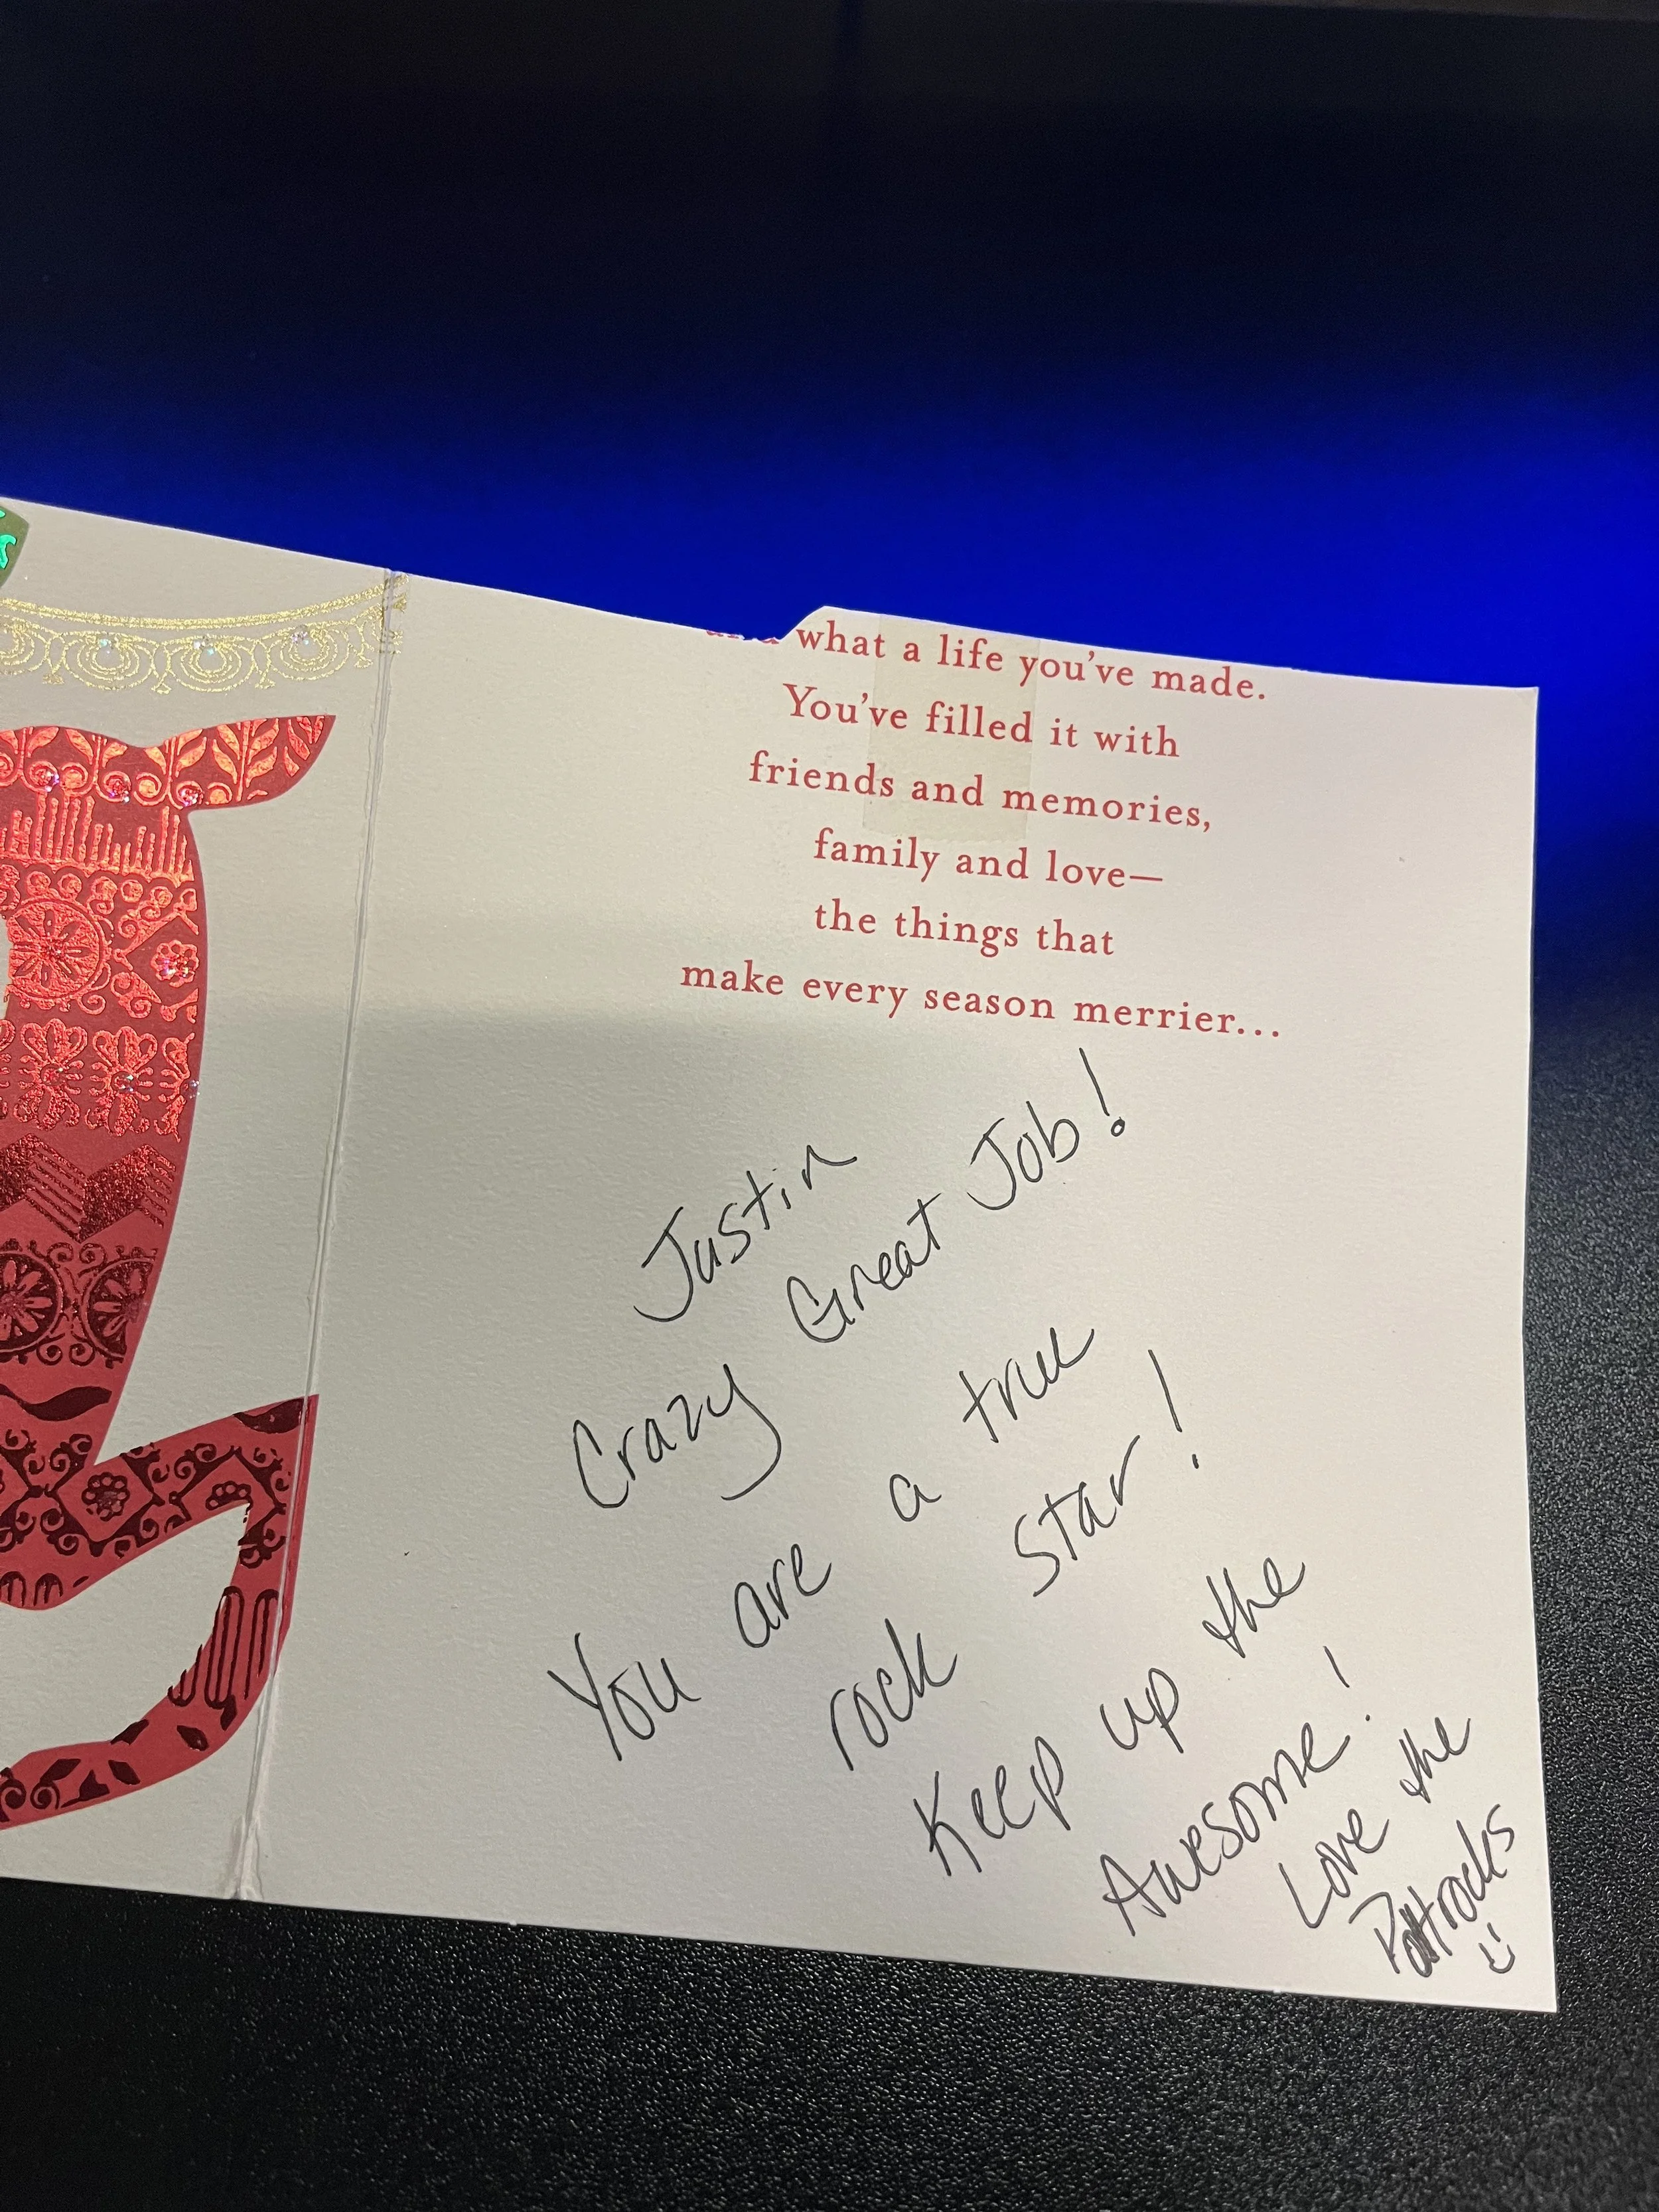 what a life you've made.
You've filled it with
friends and memories,
family and love—
the things that
make every season merrier...
Justin
Crazy Great Job!
You are a true
rock star!
Keep up the
Awesome!
Love the
Pattrocks